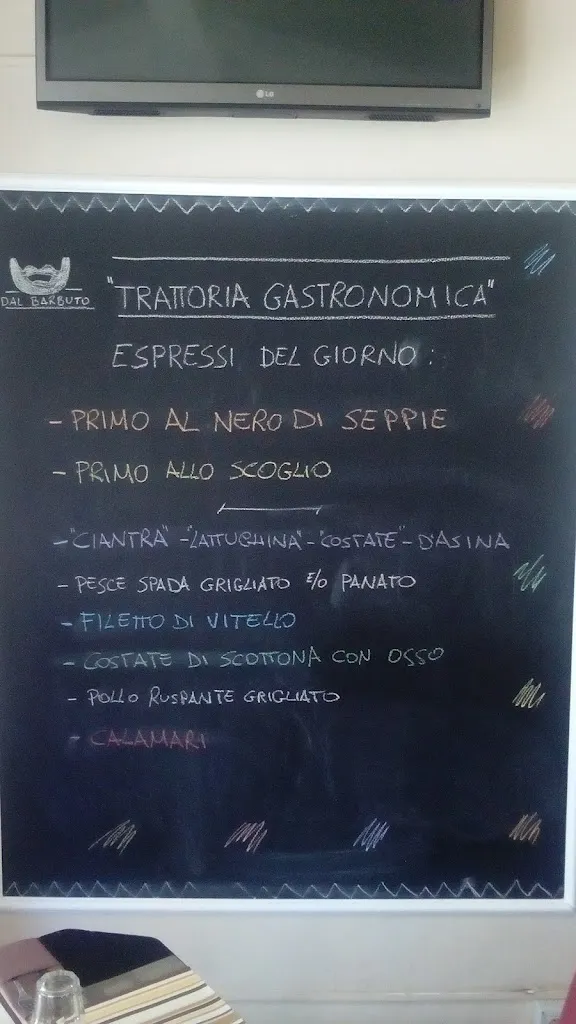 LG
DAL BARBUTO
"TRATTORIA GASTRONOMICA"
ESPRESSI DEL GIORNO :
- PRIMO AL NERO DI SEPPIE
- PRIMO ALLO SCOGLIO
- "CIANTRA" - "LATTUGHINA" - "COSTATE" - D'ASINA
- PESCE SPADA GRIGLIATO E/O PANATO
- FILETTO DI VITELLO
- COSTATE DI SCOTTONA CON OSSO
- POLLO RUSPANTE GRIGLIATO
- CALAMARI